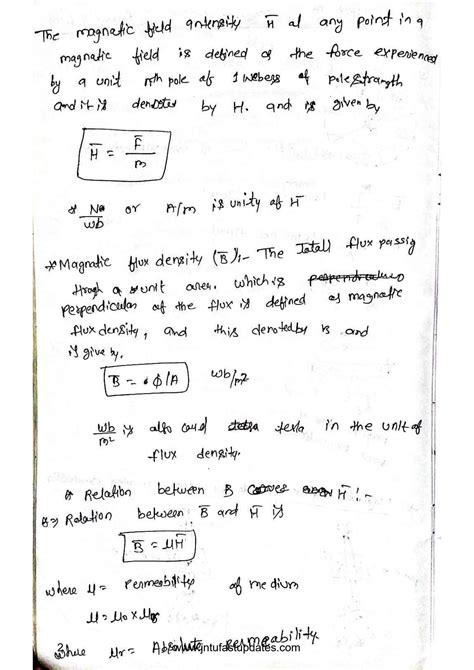 The magnetic field intensity H̄ at any point in a
magnetic field is defined as the force experienced
by a unit nth pole of 1 webess of pole strangth
and it is denoted by H. and is given by
H̄ = F̄/m
N/wb or A/m is unity of H̄
* Magnatic flux density (B̄):- The Total flux passig
throgh a unit area. which is perpendicular
perpendicular of the flux is defined as magnatic
flux density, and this denoted by B. and
is give by,
B̄ = φ/A wb/m²
wb/m² is also caud tesla in the unit of
flux density.
Relation between B H̄ :-
⇒ Rolation between B̄ and H̄ is
B̄ = μH̄
where μ = Permeability of medium
μ = μ0 × μr
where μr = Absolute permeability
www.jntufastupdates.com